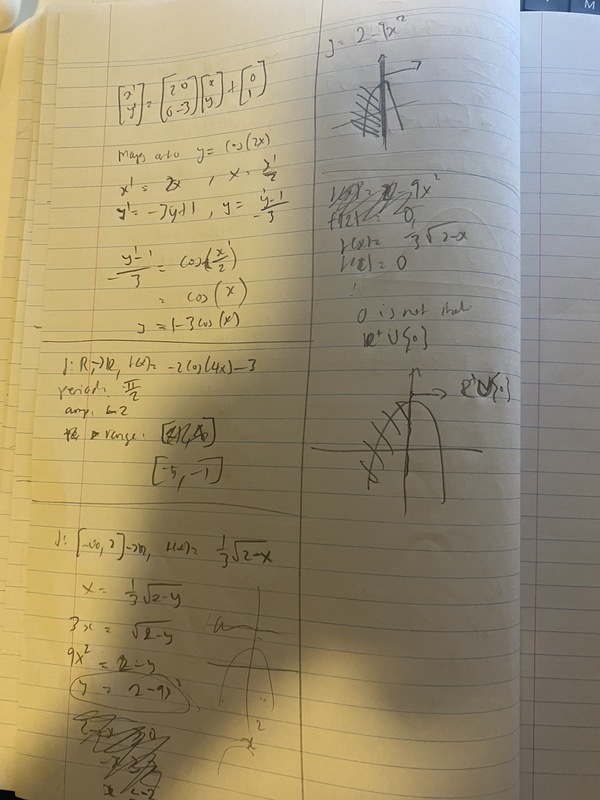 [x' y'] = [2 0 0 -3] [x y] + [0 1]
Maps onto y = cos(2x)
x' = 2x , x = x'/2
y' = -3y+1 , y = y'-1/-3
y'-1/-3 = cos(x'/2)
= cos(x)
y = 1-3cos(x)
f: R→R, f(x) = -2cos(4x)-3
period: π/2
amp: 2
range:
[-5, -1]
f: [-∞, 2]→R, f(x) = 1/3√2-x
x = 1/3√2-y
3x = √2-y
9x² = 2-y
y = 2-9x²
2
x
y = 2-9x²
-9x²
f(2) = 0
f(x) = 3√2-x
f(2) = 0
0 is not
R⁺∪{0}
R⁺∪{0}